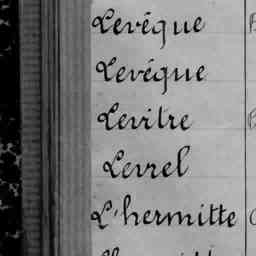 Levêque
Levéque
Levitre
Levrel
L'hermitte